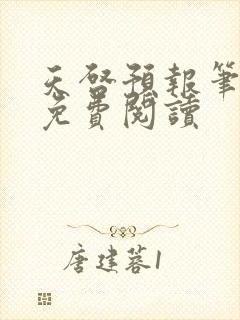 天啓預報筆
免費閱讀
唐建蓉1